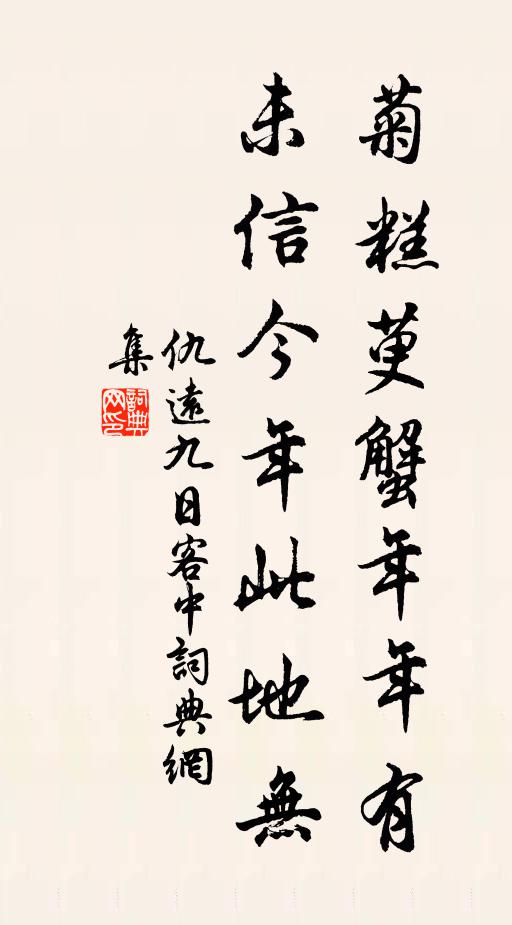 菊糕萸蟹年年有
未信今年此地無
仇遠九日客中詞典網
集
詞典
网印